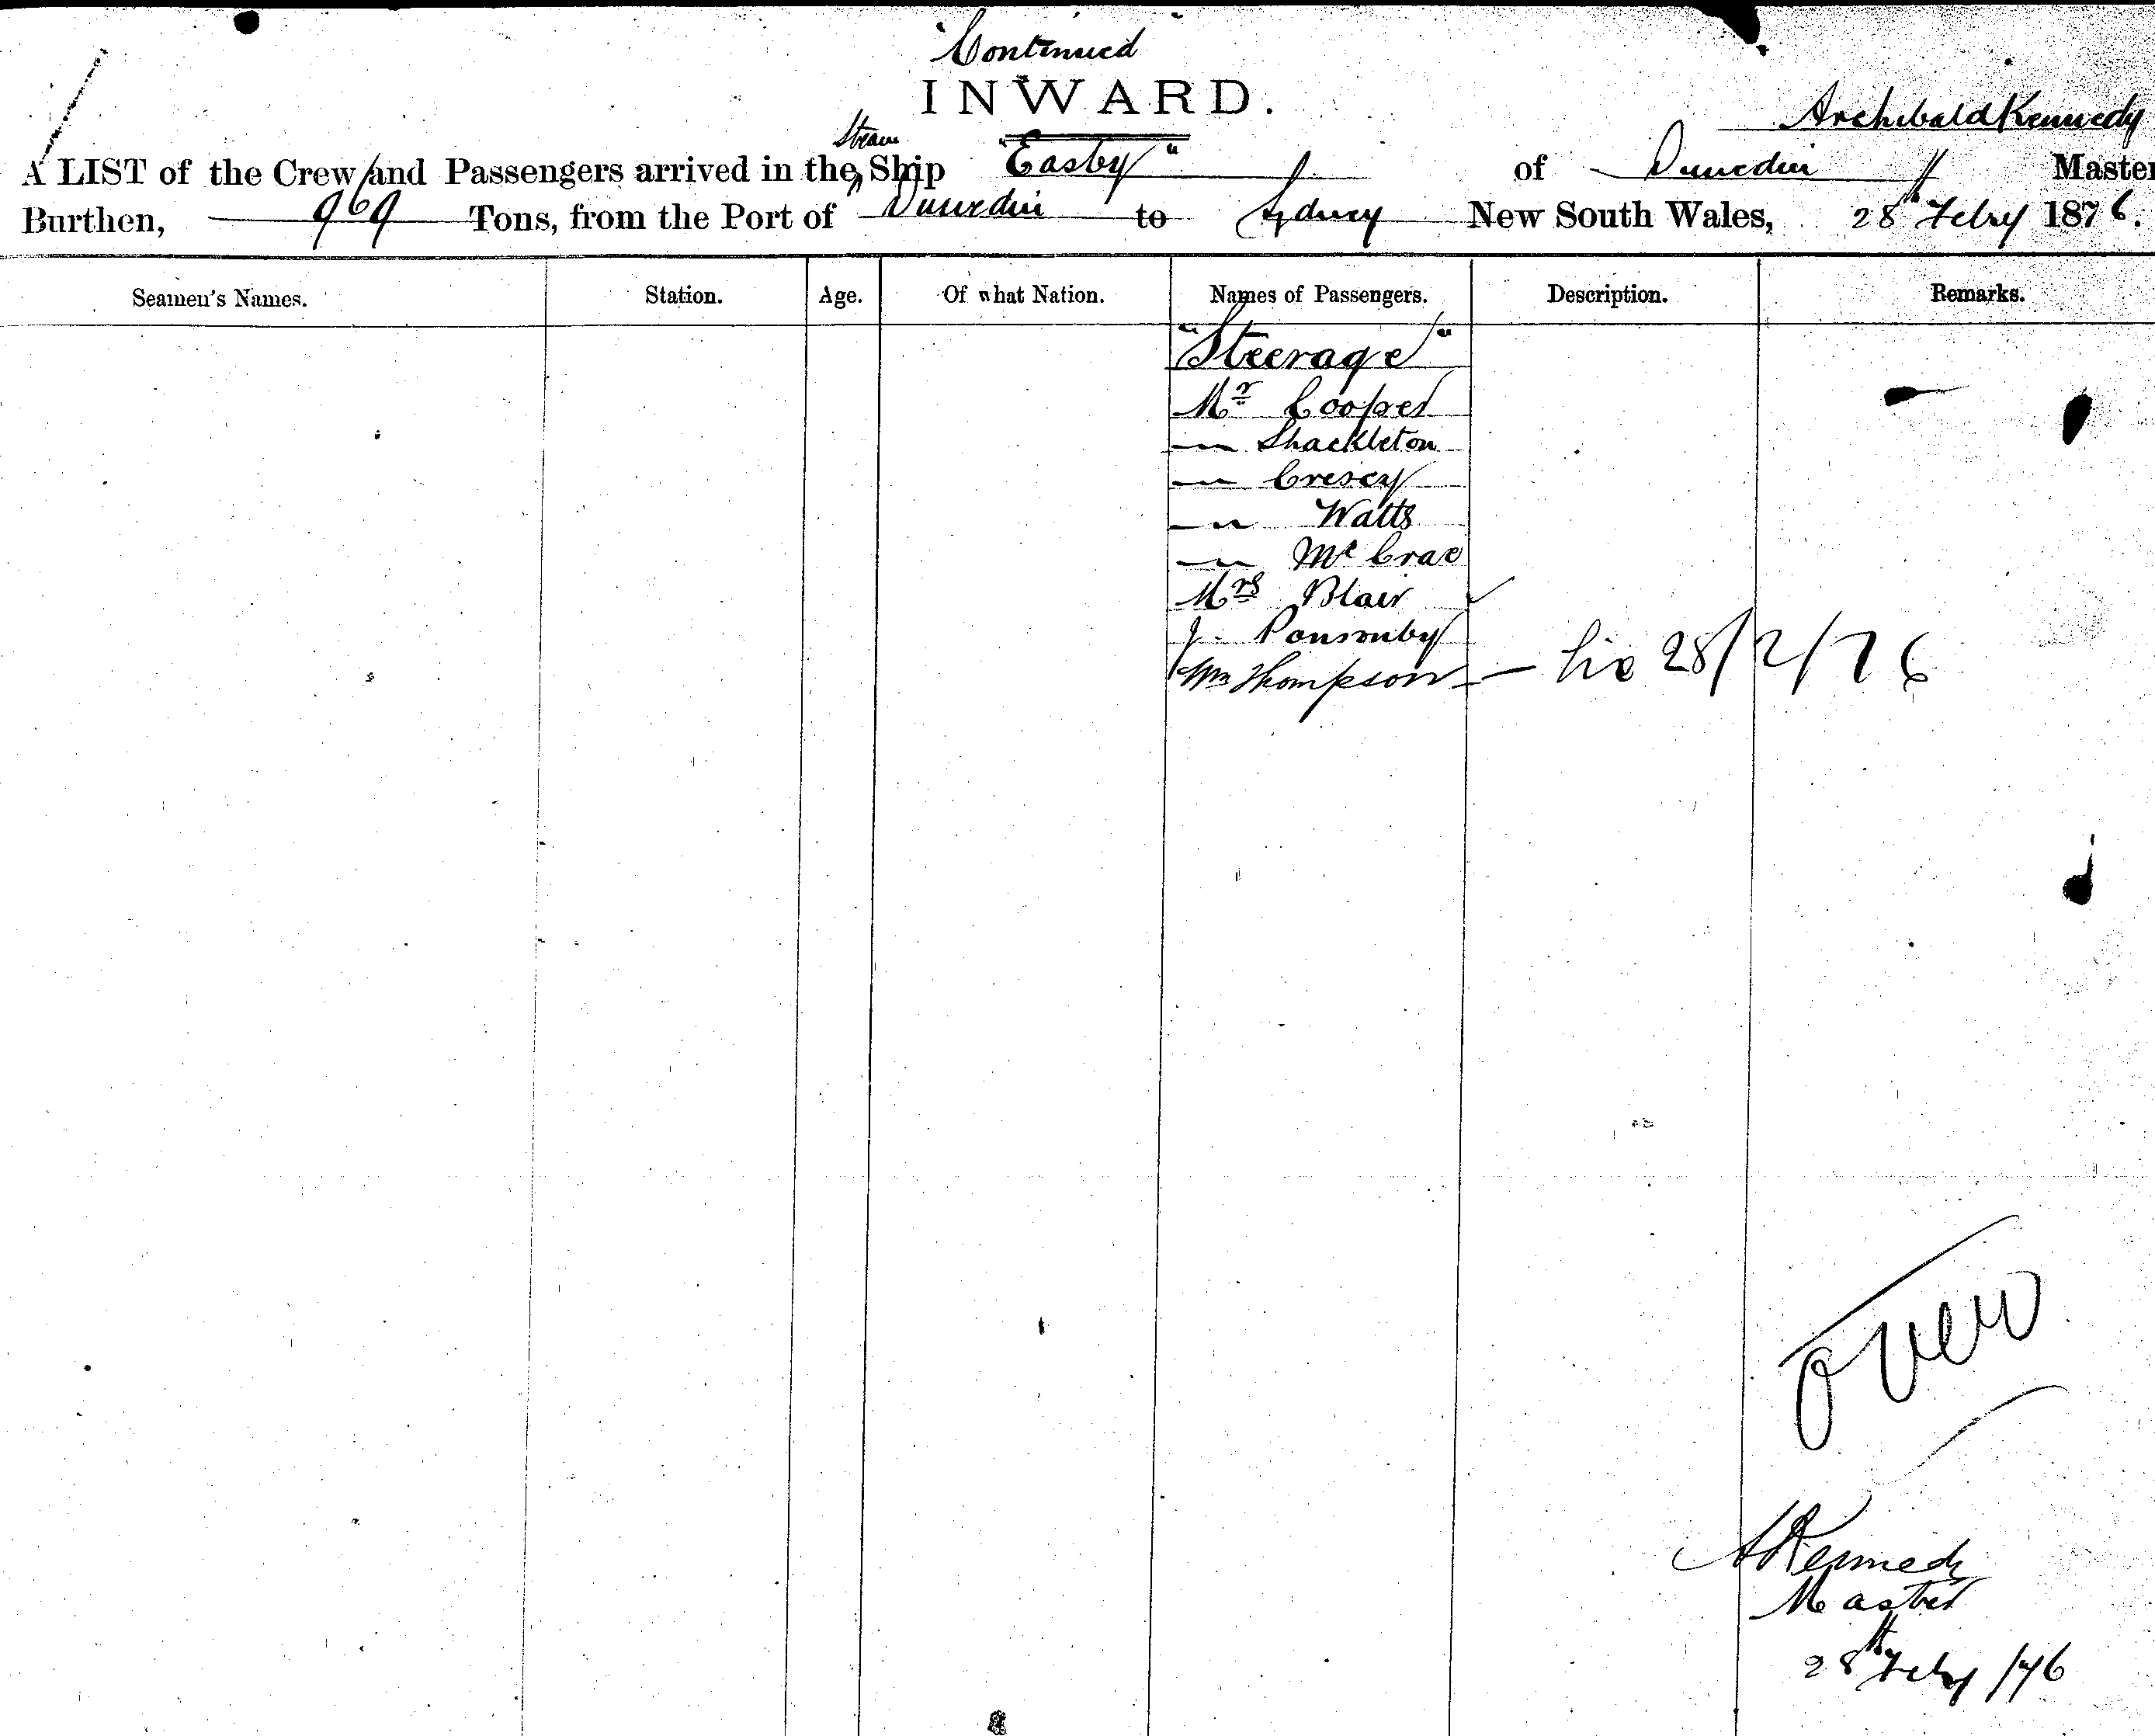 "Continued
INWARD.
Archibald Kennedy
Steam
A LIST of the Crew and Passengers arrived in the Ship "Easby" of Dunedin Master
Burthen, 969 Tons, from the Port of Dunedin to Sydney New South Wales, 28th Febry 1876.
Seamen's Names. Station. Age. Of what Nation. Names of Passengers. Description. Remarks.
"Steerage"
Mr Cooper
—"— Shackleton
—"— Crescy
—"— Watts
—"— McCrae
Mrs Blair ✓
J. Ponsonby
Wm Thompson — 28/2/76
over
AKennedy
Master
28th Febry /76